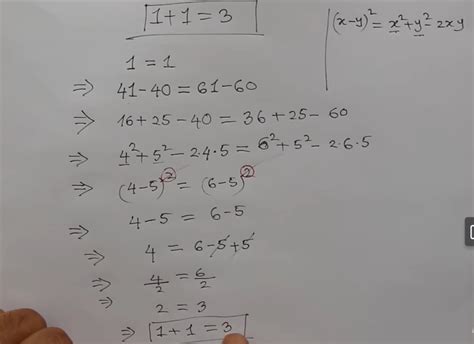 1+1=3
(x-y)² = x²+y²-2xy
1 = 1
⇒ 41-40 = 61-60
⇒ 16+25-40 = 36+25-60
⇒ 4²+5²-2·4·5 = 6²+5²-2·6·5
⇒ (4-5)² = (6-5)²
⇒ 4-5 = 6-5
⇒ 4 = 6-5+5
⇒ 4/2 = 6/2
⇒ 2 = 3
⇒ 1+1=3